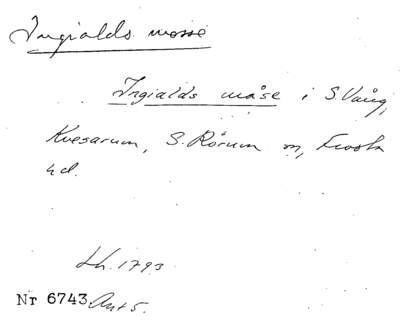 Ingialds mosse
Ingialds måse i S. Vång,
Kvesarum, S. Rörum sn, Frosta
hd.
Lh. 1793
Nr 6743 Ant 5.